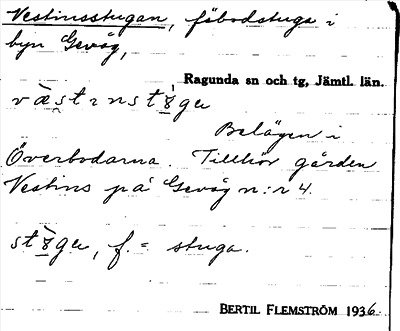 Vestinsstugan, fäbodstuga i
byn Gevåg,
Ragunda sn och tg, Jämtl. län.
Belägen i
Överbodarna. Tillhör gården
Vestins på Gevåg n:r 4.
f. = stuga.
BERTIL FLEMSTRÖM 1936.